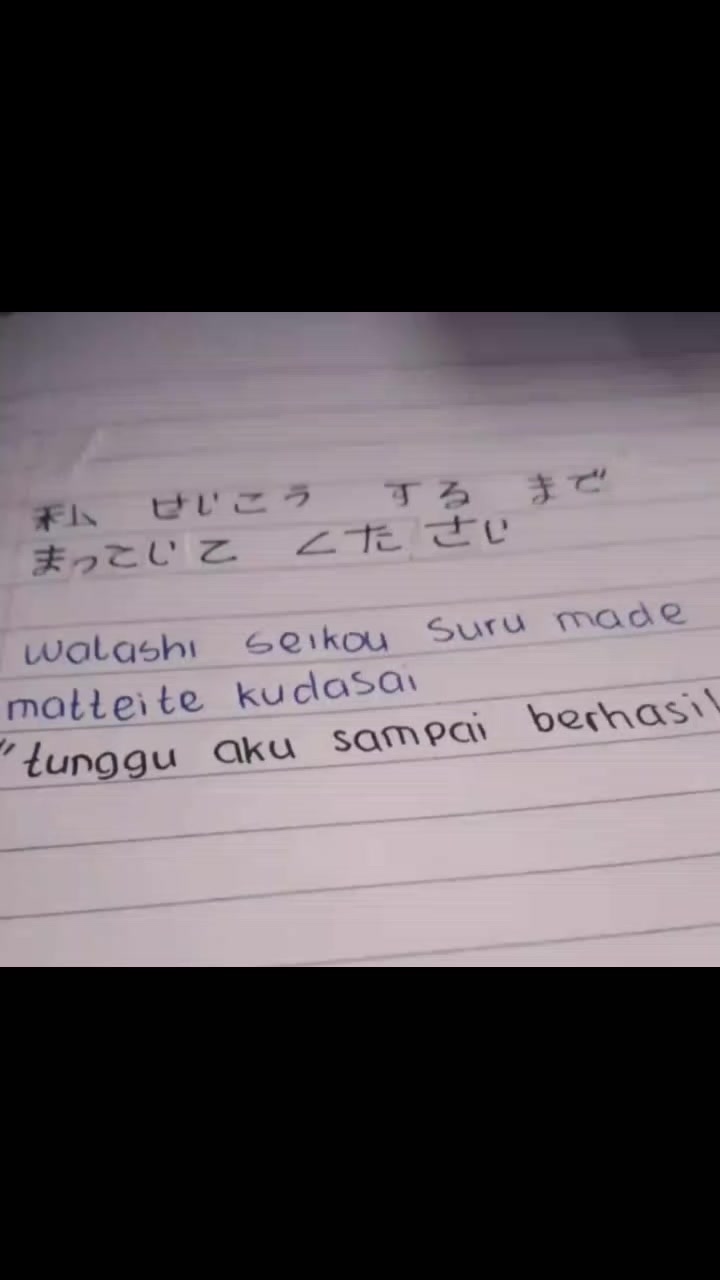 私 せいこう する まで
まっていて くたさい
watashi seikou suru made
matteite kudasai
"tunggu aku sampai berhasil